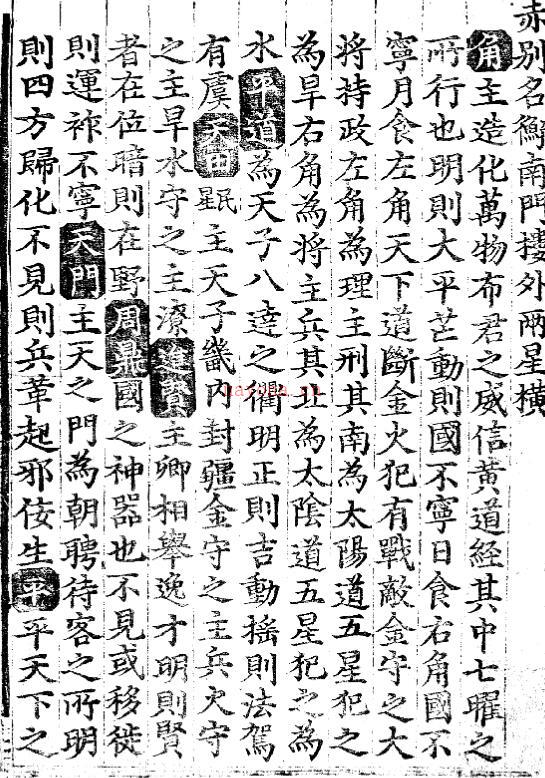 赤別名衡南門樓外兩星橫
角主造化萬物布君之威信黃道経其中七曜之
所行也明則大平芒動則國不寧日食右角國不
寧月食左角天下道斷金火犯有戰敵金守之大
将持政左角為理主刑其南為太陽道五星犯之
為旱右角為将主兵其北為太陰道五星犯之為
水平道為天子八達之衢明正則吉動搖則法駕
有虞天田民星主天子畿内封疆金守之主兵火守
之主旱水守之主潦進賢主卿相舉逸才明則賢
者在位暗則在野周鼎國之神器也不見或移徙
則運祚不寧天門主天之門為朝聘待客之所明
則四方歸化不見則兵革起邪佞生平平天下之